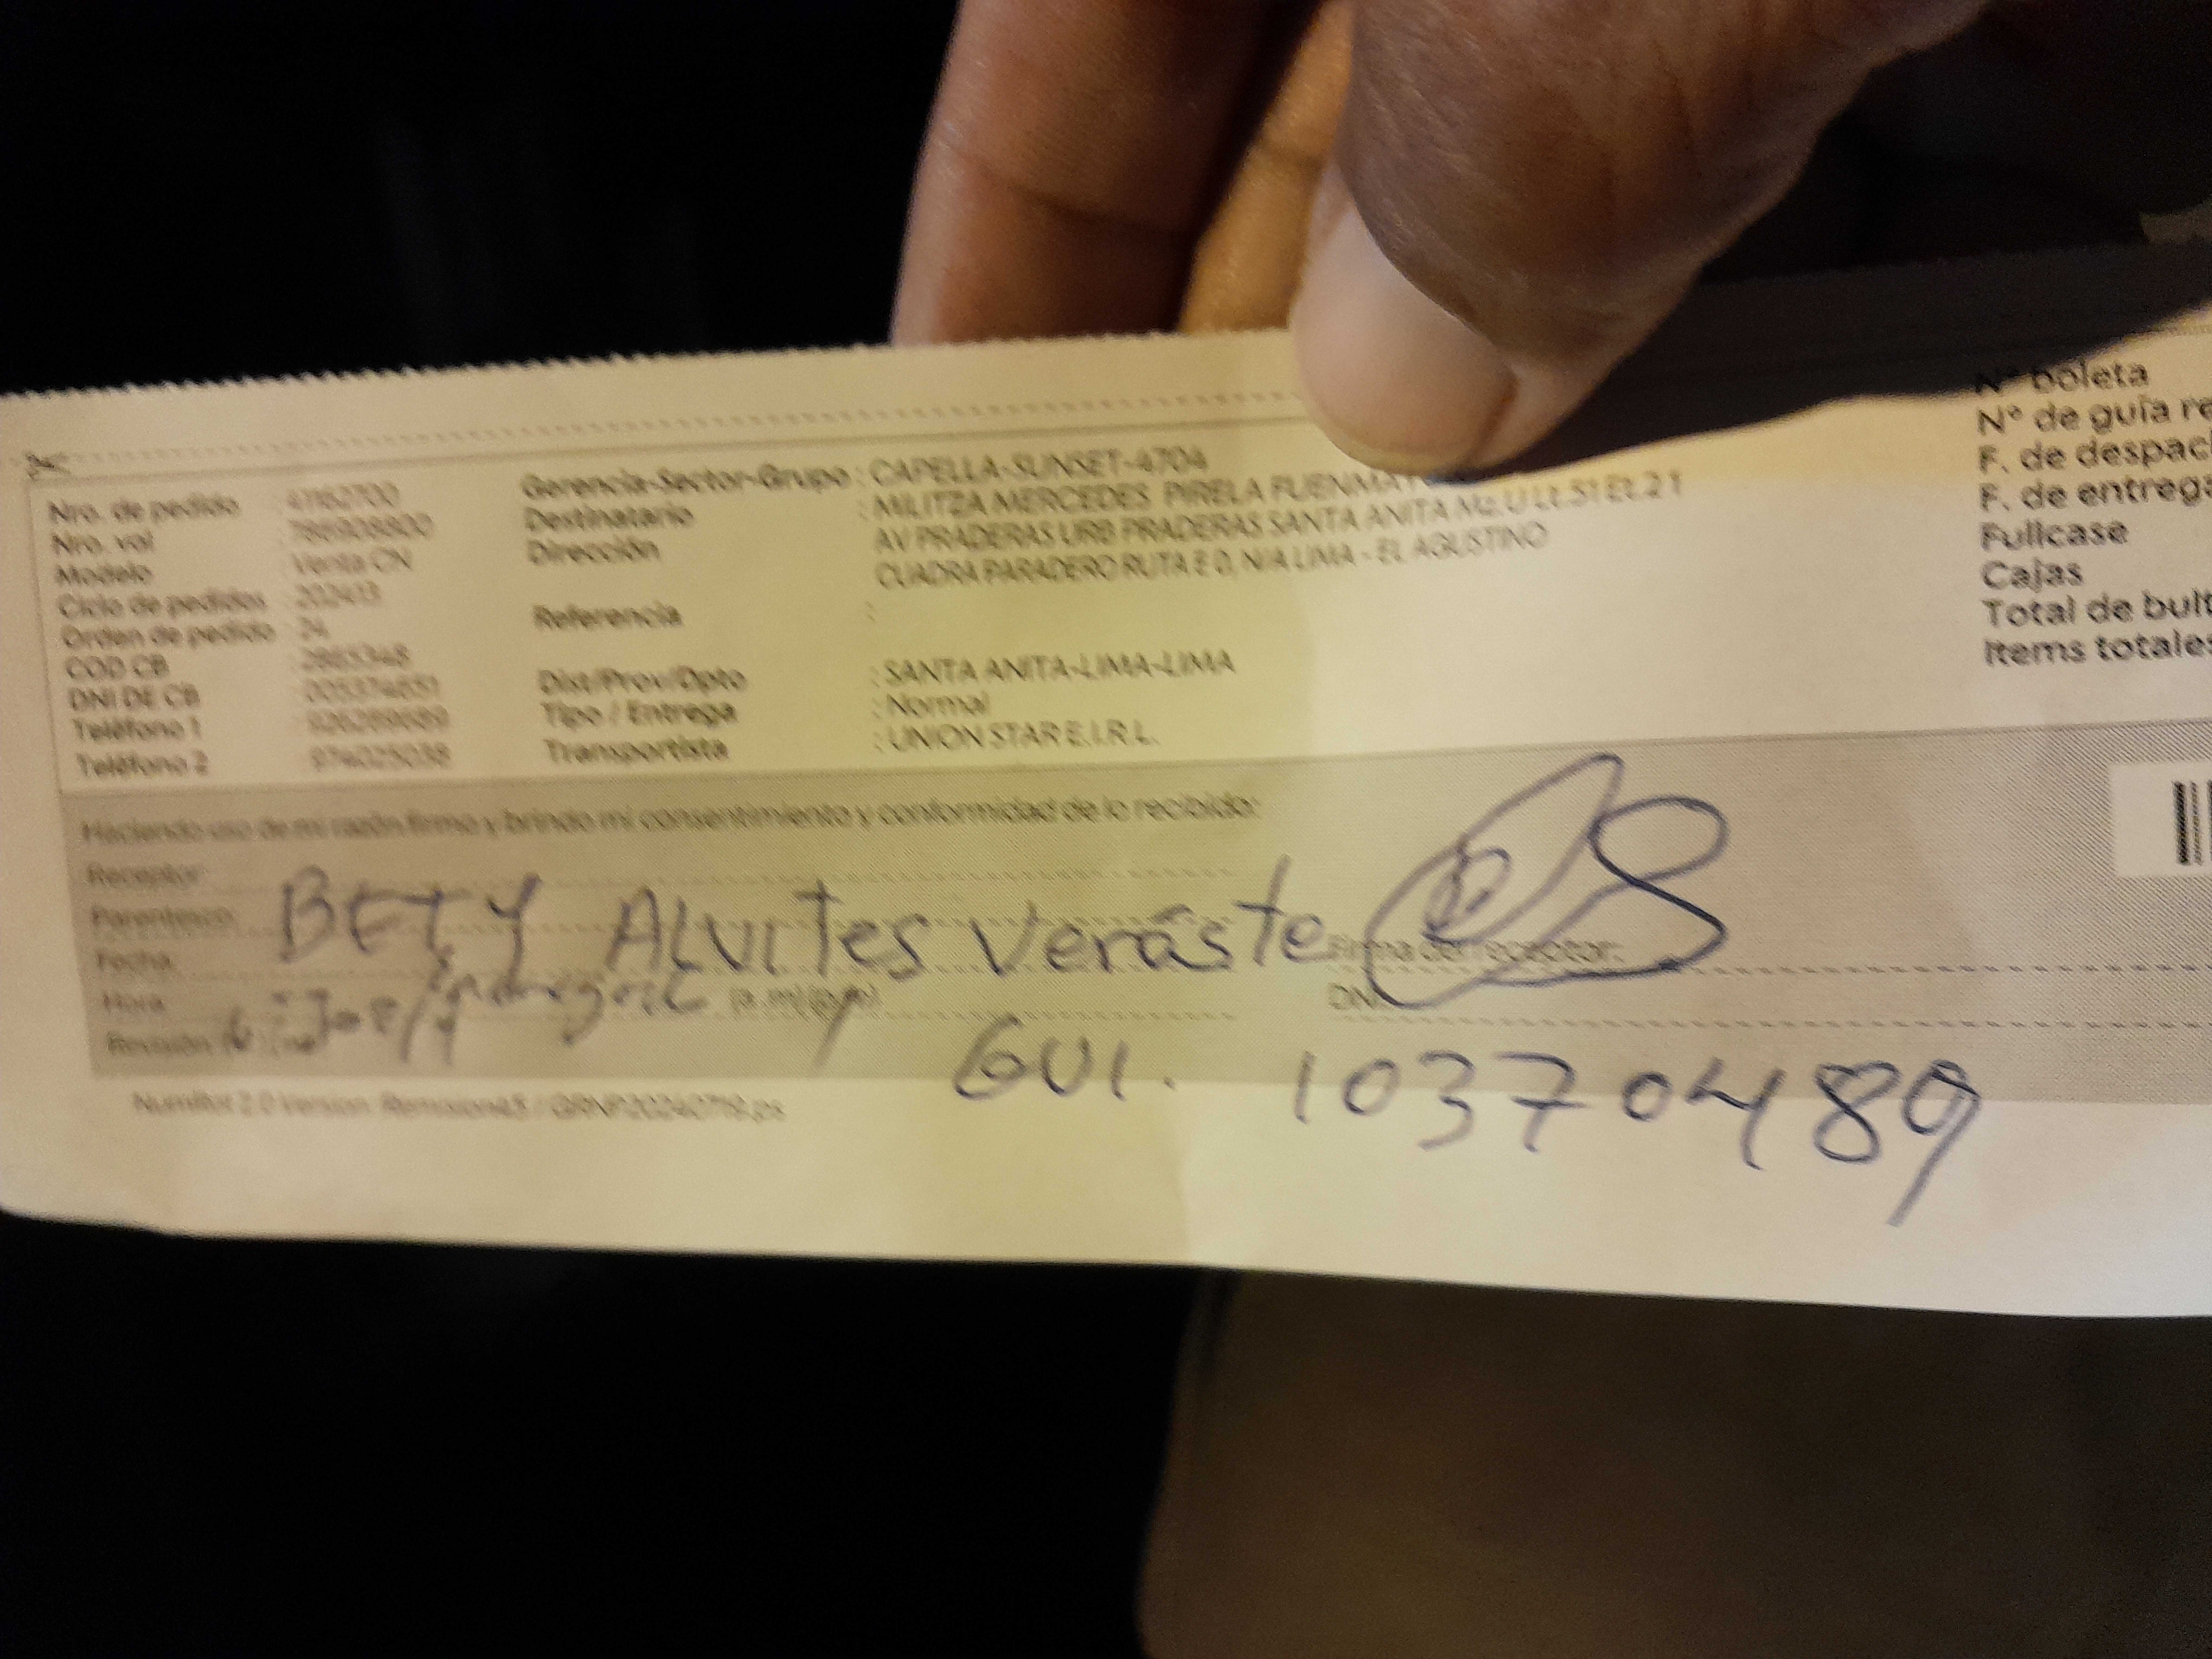 Nro. de pedido : 41162700
Nro. vol : 786908800
Modelo : Venta CN
Ciclo de pedidos : 202413
Orden de pedido : 24
COD CB : 2865348
DNI DE CB
Teléfono 1
Teléfono 2 : 974025038
Gerencia-Sector-Grupo : CAPELLA-SUNSET-4704
Destinatario : MILITZA MERCEDES PIRELA FUENMA
Dirección : AV PRADERAS URB PRADERAS SANTA ANITA Mz.U Lt.51 Et.2 1
CUADRA PARADERO RUTA E 0, N/A LIMA - EL AGUSTINO
Referencia :
Dist/Prov/Dpto : SANTA ANITA-LIMA-LIMA
Tipo / Entrega : Normal
Transportista : UNION STAR E.I.R.L.
N° boleta
N° de guía re
F. de despac
F. de entrega
Fullcase
Cajas
Total de bult
Items totales
Haciendo uso de mi razón firmo y brindo mi consentimiento y conformidad de lo recibido:
Receptor:
Parentesco: BETY Alvites Veráste
Fecha:
Hora
Revisión
Firma del receptor:
DNI
GUI. 10370489